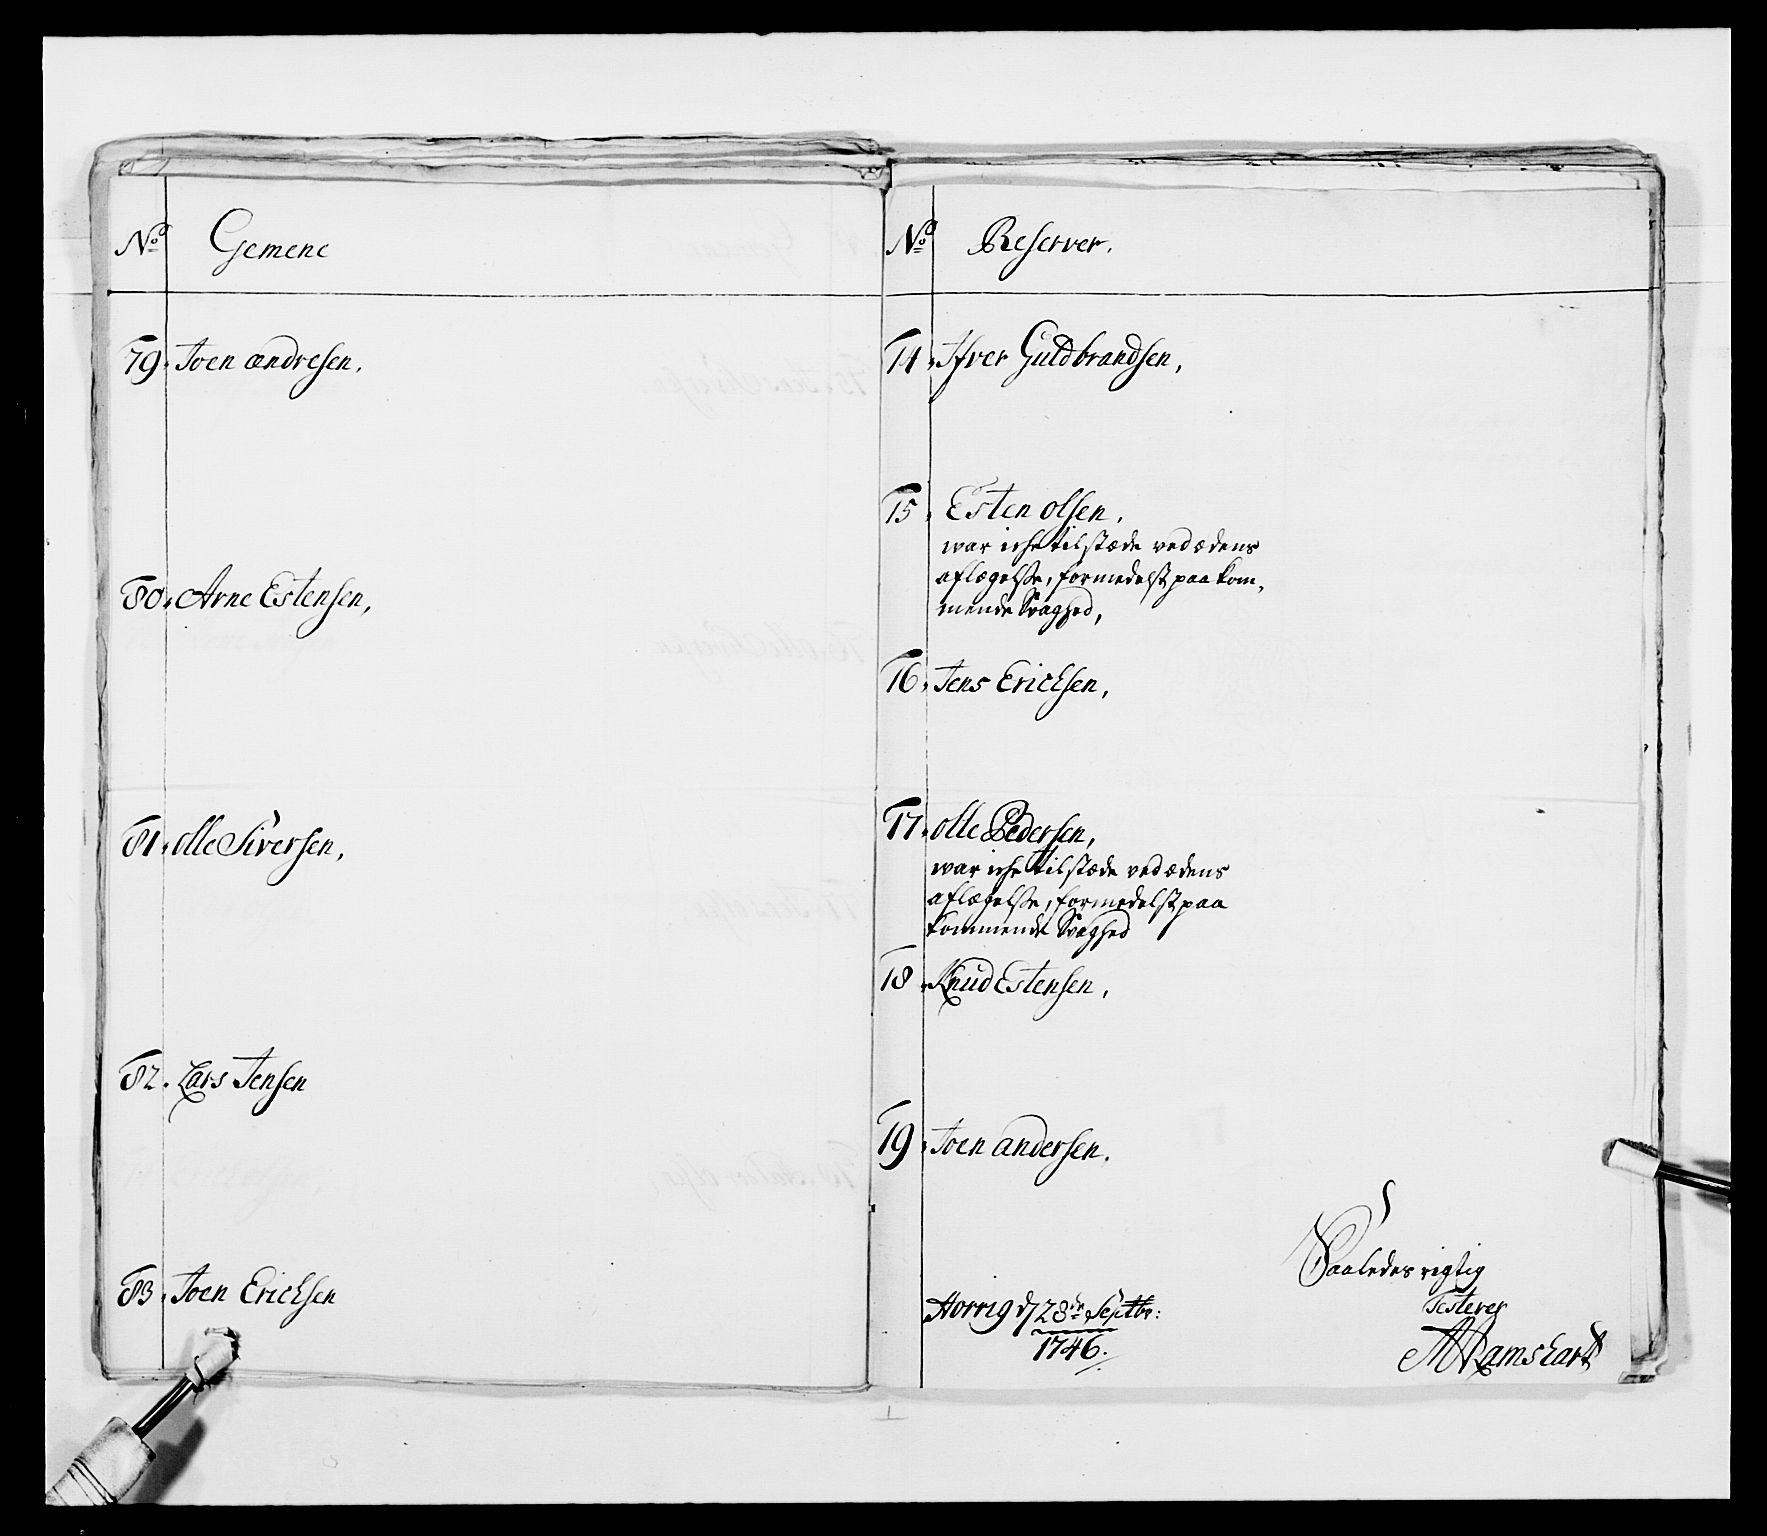 No Gemene
79. Joen andresen,
80. Arne Estensen,
81. olle Siversen,
82. Lars Jensen
83. Joen Erichsen
No Reserver.
14. Ifver Guldbrandsen,
15. Esten olsen,
war iche tilstæde ved ædens
aflægelse, formedelst paa kom,
mende Svaghed,
16. Jens Erichsen,
17. olle Pedersen,
war iche tilstæde ved ædens
aflægelse, formedelst paa
kommende Svaghed
18. Knud Estensen,
19. Joen andersen.
Saaledes rigtig
Testerer
Horrig d 28de Septbr:
1746.